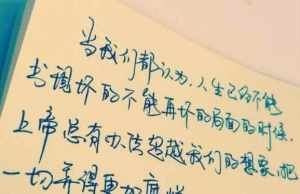 当我们都认为,人生已经不能
出现坏的不能再坏的局面的时候,
上帝总有办法超越我们的想象,把
一切弄得更加糜烂